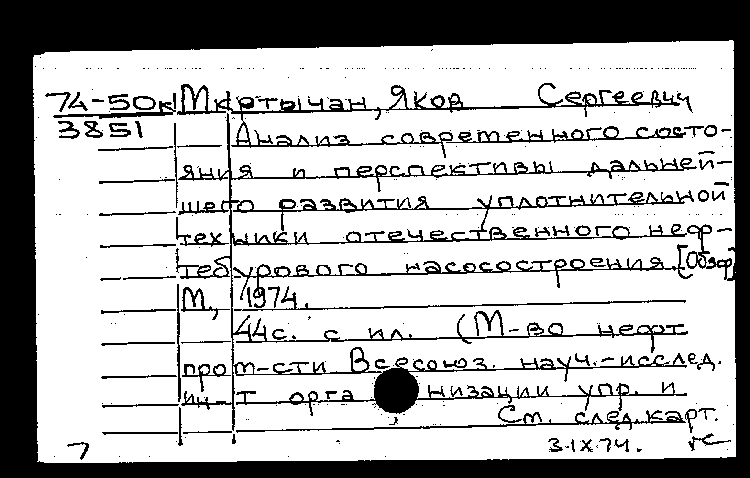 74-50к Мкртычан, Яков Сергеевич
3851
Анализ современного состо-
яния и перспективы дальней-
шего развития уплотнительной
техники отечественного неф-
тебурового насосостроения. [Обзор]
М., 1974.
44с. с ил. (М-во нефт
пром-сти Всесоюз. науч.-исслед.
ин-т орга низации упр. и
См. след. карт.
7 3.IX.74.